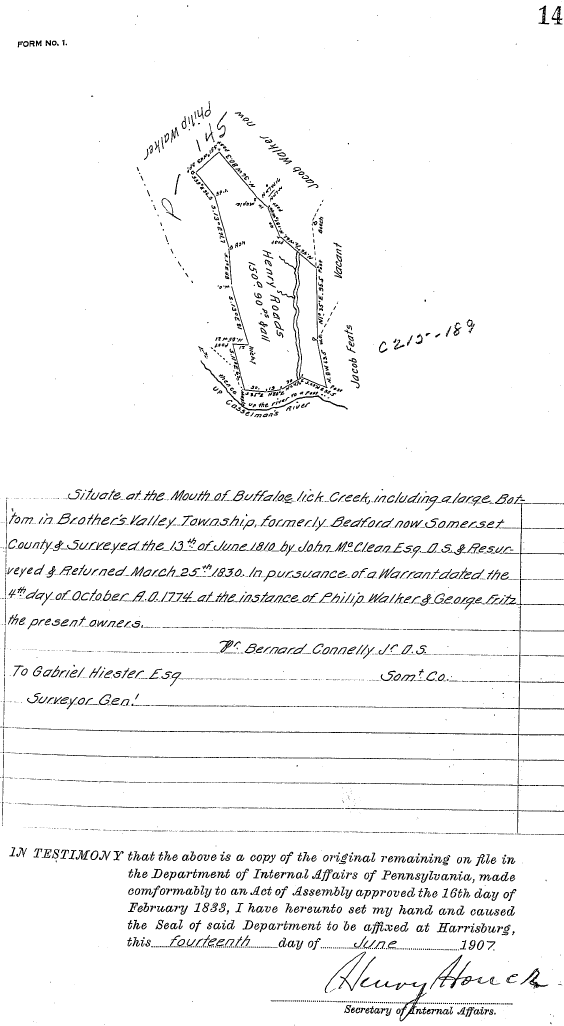 14
FORM No. 1.
Philip Walker
now
Jacob Walker
Henry Roads
150a. 90 ps & all
Vacant
Jacob Feats
C215-189
up the river to a Post
UP Casselman's River
Situate at the Mouth of Buffaloe lick Creek, including a large Bot-
tom in Brother's Valley Township, formerly Bedford now Somerset
County & Surveyed the 13th of June 1810 by John McClean Esq D.S. & Resur-
veyed & Returned March 25th 1830. In pursuance of a Warrant dated the
4th day of October A.D. 1774 at the instance of Philip Walker & George Fritz
the present owners.
Pr. Bernard Connelly Jr D.S.
To Gabriel Hiester Esq Somt Co.
Surveyor Genl
IN TESTIMONY that the above is a copy of the original remaining on file in
the Department of Internal Affairs of Pennsylvania, made
comformably to an Act of Assembly approved the 16th day of
February 1833, I have hereunto set my hand and caused
the Seal of said Department to be affixed at Harrisburg,
this fourteenth day of June 1907.
Henry Houck
Secretary of Internal Affairs.